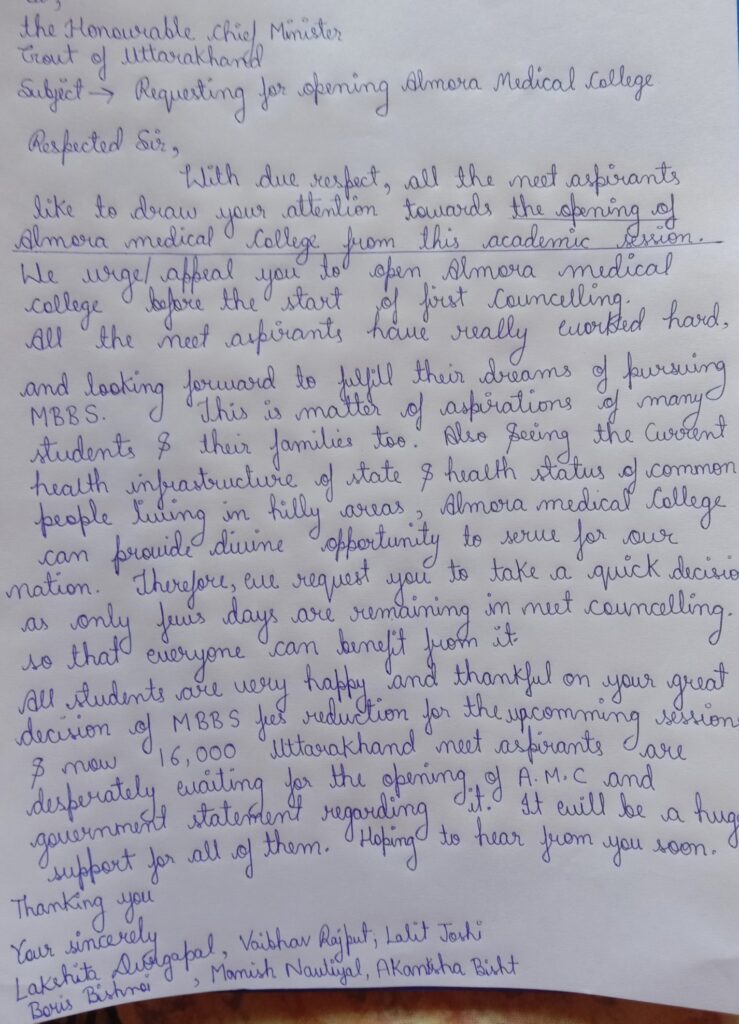 the Honourable Chief Minister
Govt of Uttarakhand
Subject → Requesting for opening Almora Medical College
Respected Sir,
With due respect, all the neet aspirants
like to draw your attention towards the opening of
Almora medical College from this academic session.
We urge/appeal you to open Almora medical
college before the start of first councelling.
All the neet aspirants have really worked hard,
and looking forward to fulfill their dreams of pursuing
MBBS. This is matter of aspirations of many
students & their families too. Also seeing the current
health infrastructure of state & health status of common
people living in hilly areas, Almora medical College
can provide divine opportunity to serve for our
nation. Therefore, we request you to take a quick decisio
as only few days are remaining in neet councelling.
so that everyone can benefit from it
All students are very happy and thankful on your great
decision of MBBS fees reduction for the upcomming session
& now 16,000 Uttarakhand neet aspirants are
desperately waiting for the opening of A.M.C and
government statement regarding it. It will be a hug
support for all of them. Hoping to hear from you soon.
Thanking you
Your sincerely
Lakshita Durgapal, Vaibhav Rajput, Lalit Joshi
Boris Bishnoi, Manish Nautiyal, Akanksha Bisht